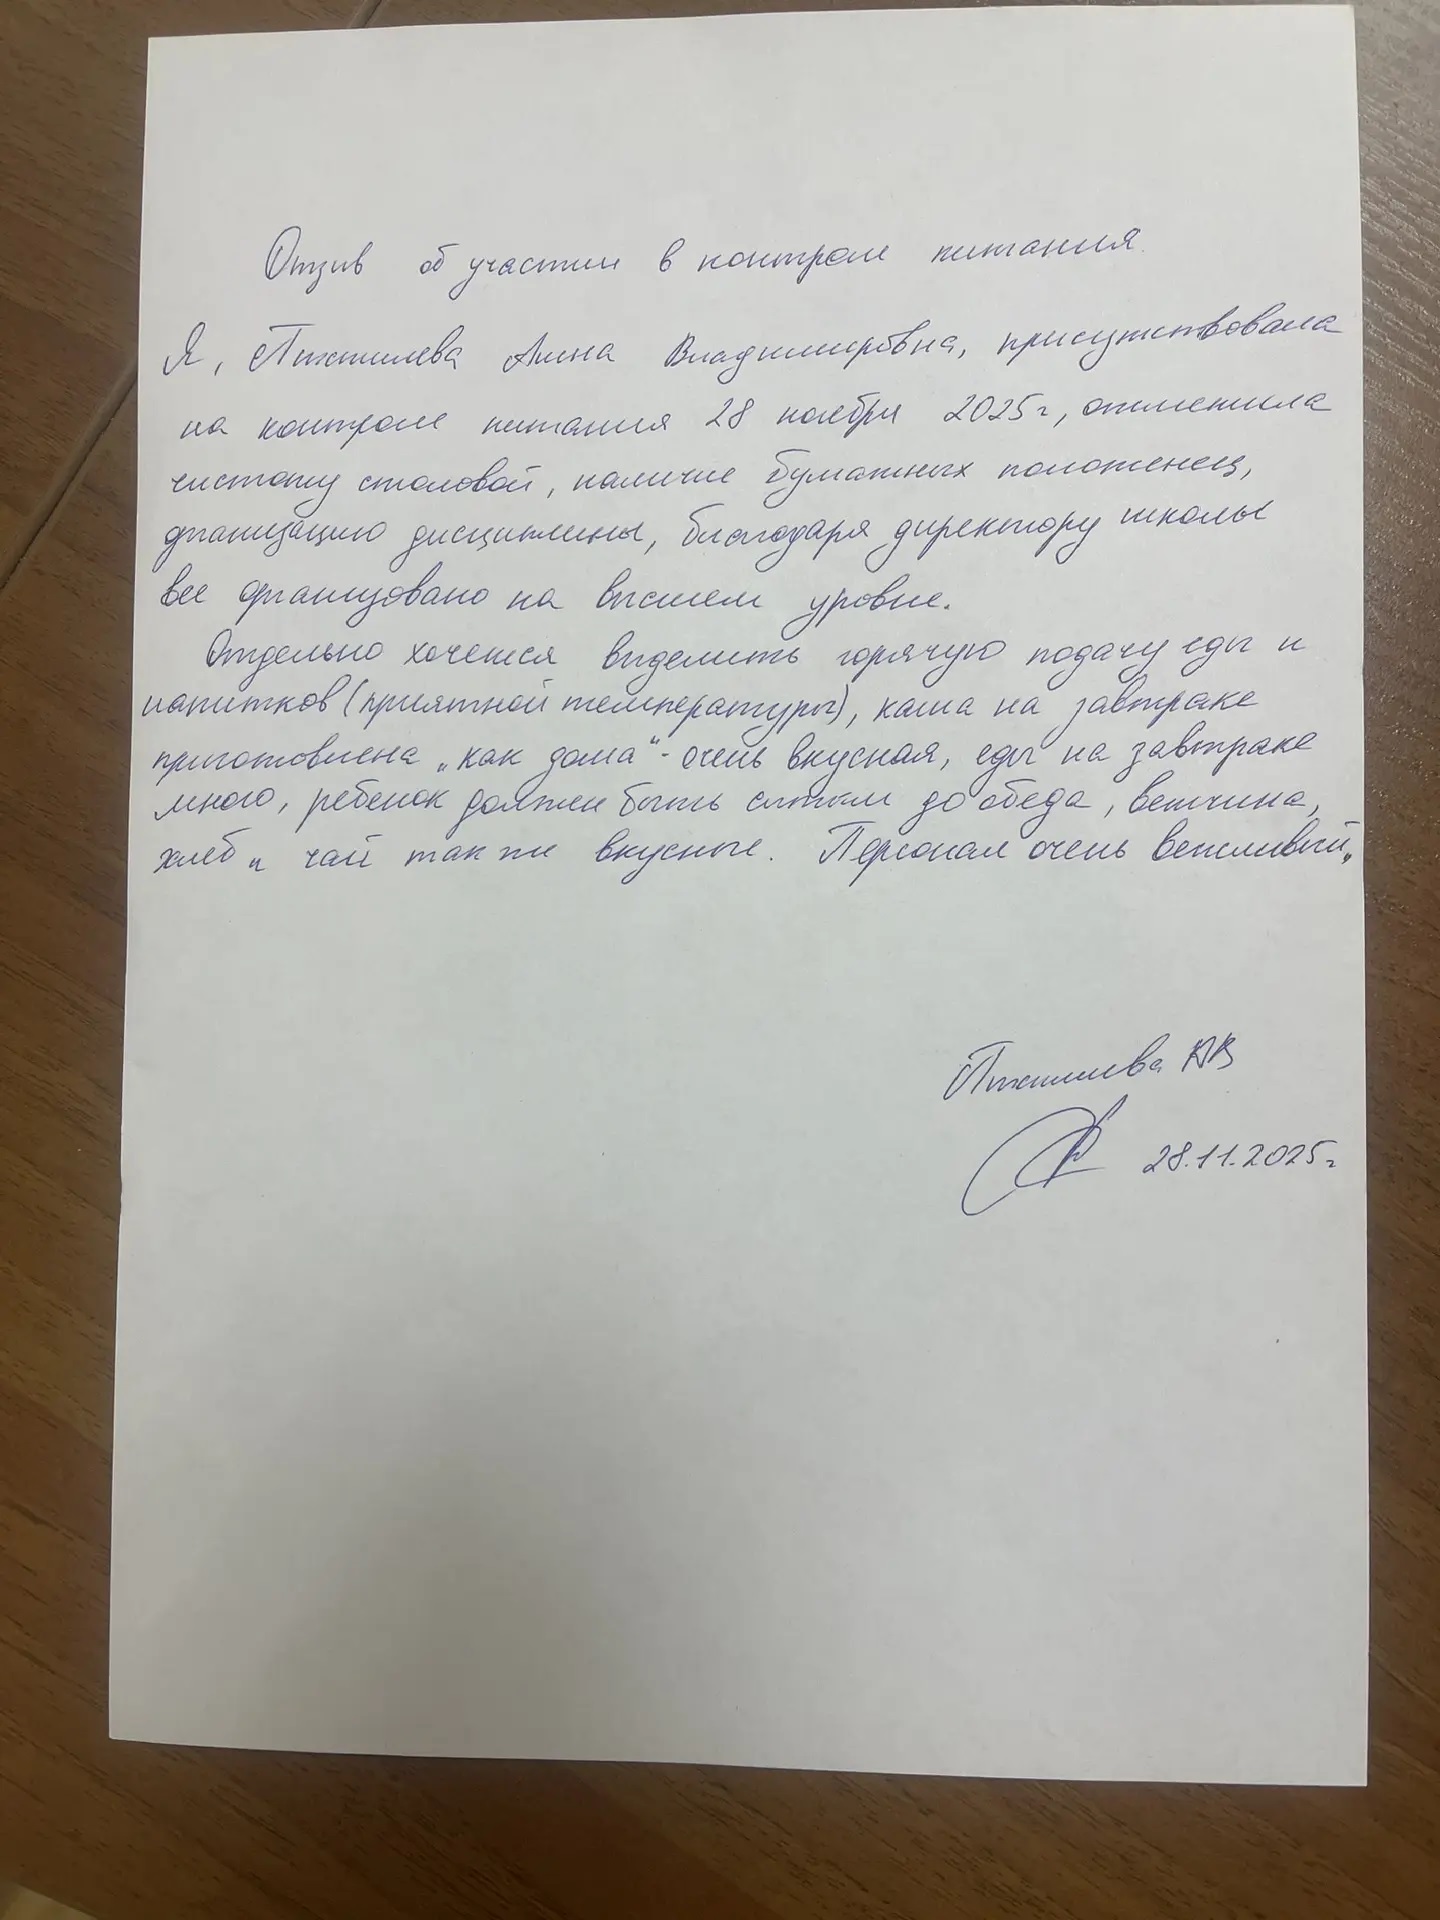 Отзыв об участии в контроле питания.
Я, Алина Владимировна, присутствовала
на контроле питания 28 ноября 2025г, отметила
чистоту столовой, наличие бумажных полотенец,
организацию дисциплины, благодаря директору школы
все организовано на высшем уровне.
Отдельно хочется выделить горячую подачу еды и
напитков (приятной температуры), каша на завтраке
приготовлена „как дома“ - очень вкусная, еды на завтраке
много, ребенок должен быть сытым до обеда, ветчина,
хлеб и чай так же вкусные. Персонал очень вежливый.
АВ
28.11.2025г